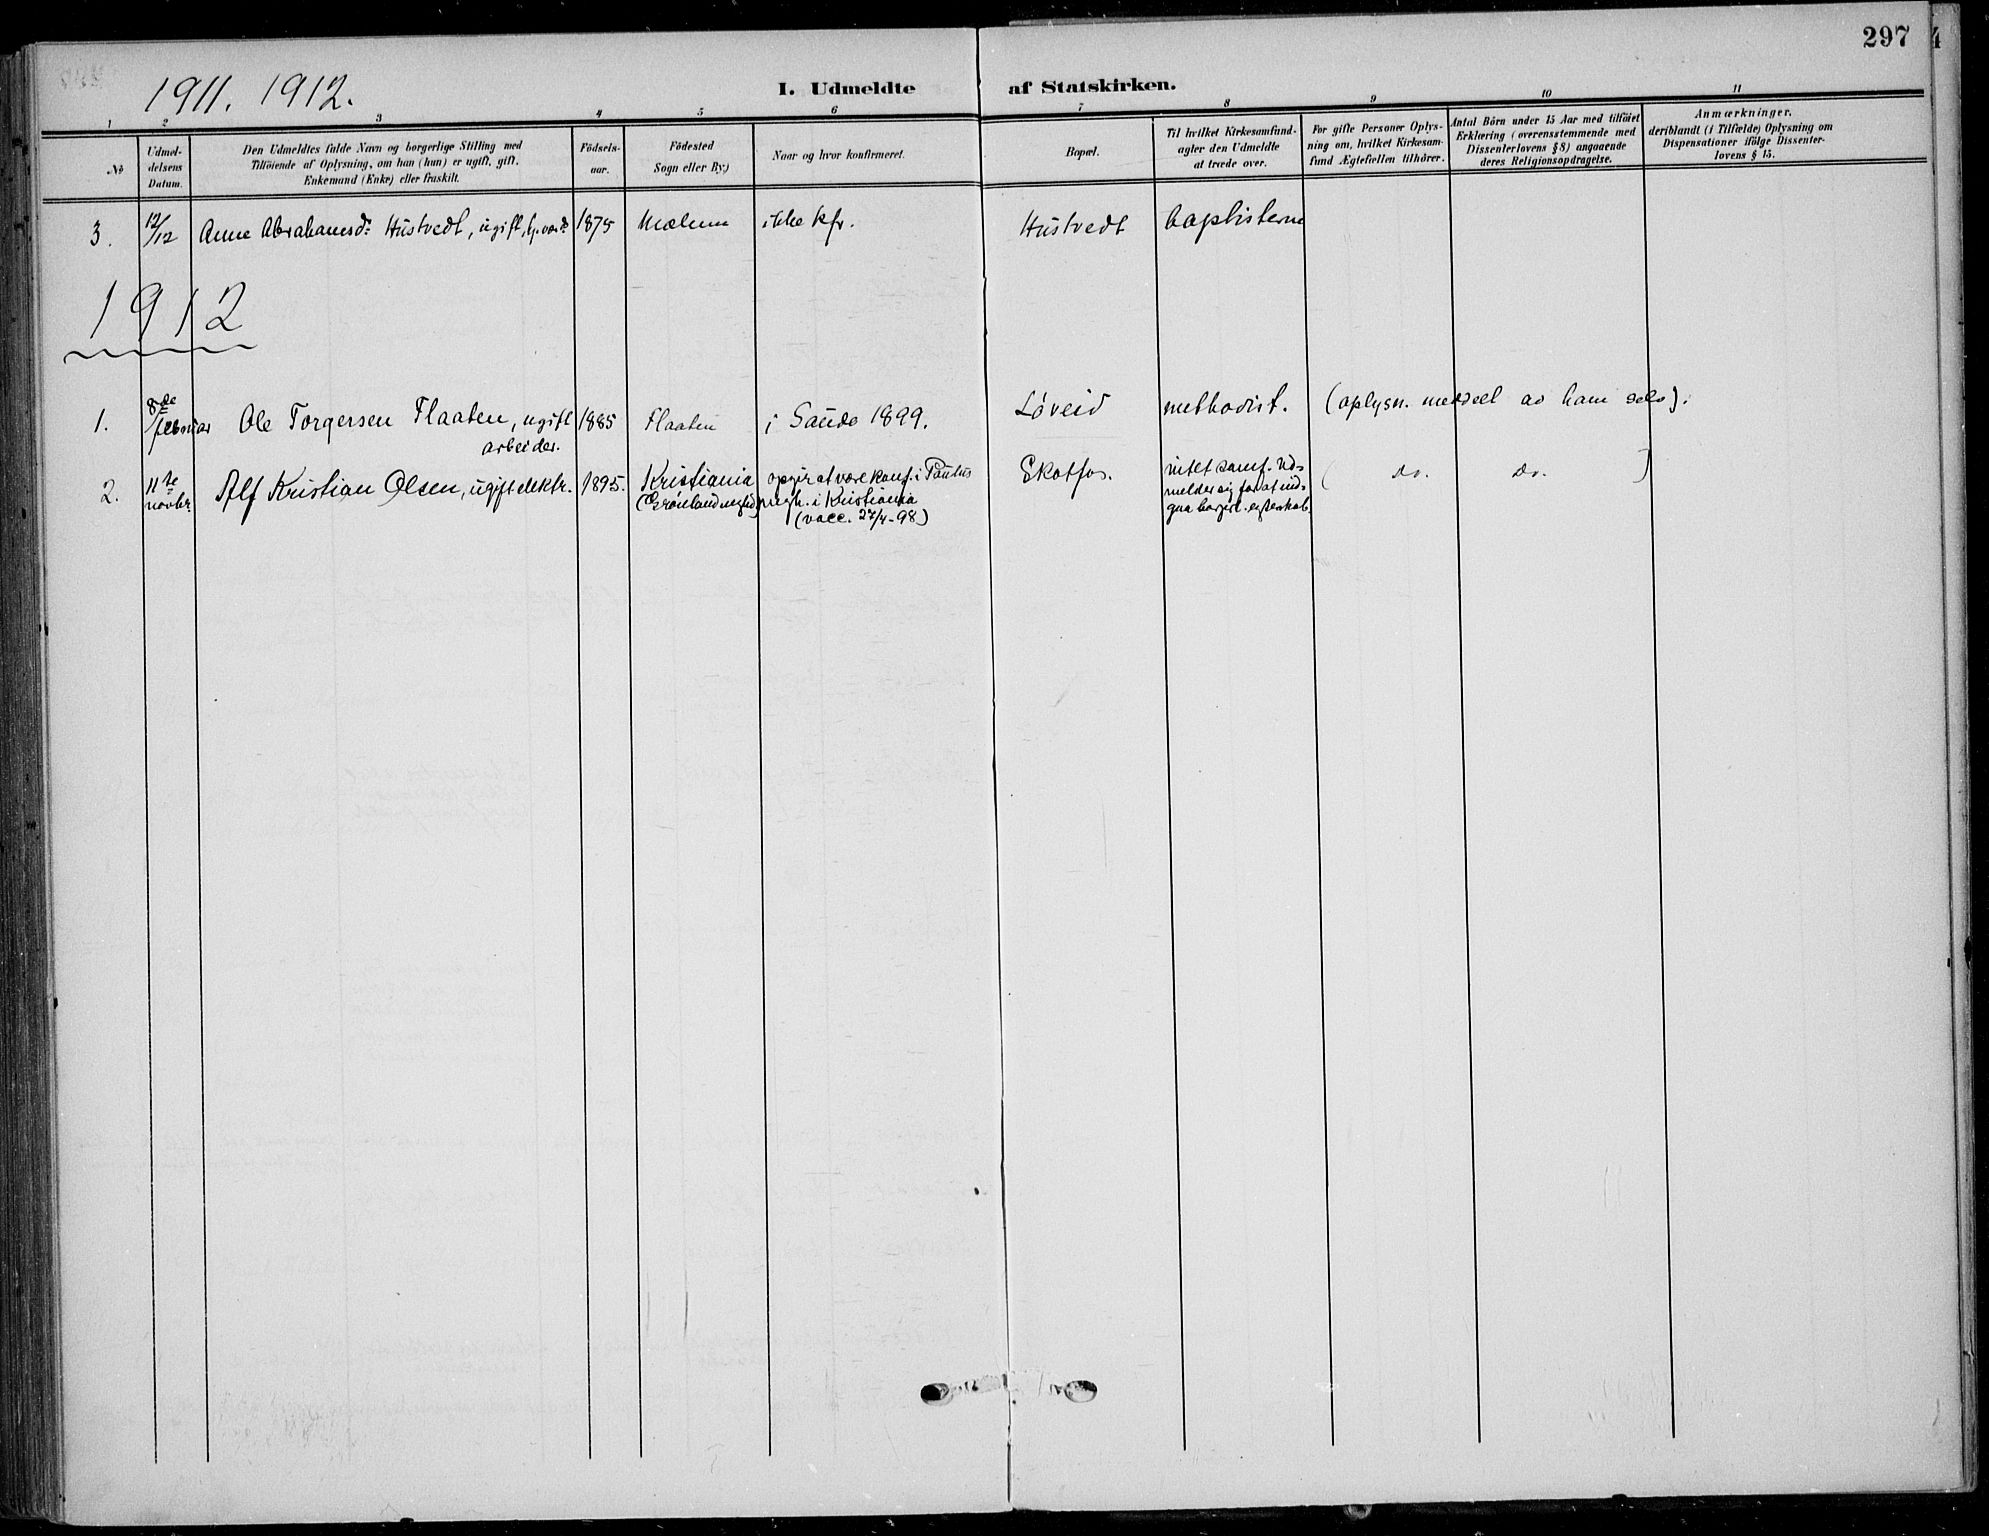 297
1911. 1912.
I. Udmeldte af Statskirken.
1 2 3 4 5 6 7 8 9 10 11
No
Udmel-
delsens
Datum.
Den Udmeldtes fulde Navn og borgerlige Stilling med
Tilföiende af Oplysning, om han (hun) er ugift, gift,
Enkemand (Enke) eller fraskilt.
Födsels-
aar.
Födested
Sogn eller By.)
Naar og hvor konfirmeret.
Bopæl.
Til hvilket Kirkesamfund-
agter den Udmeldte
at træde over.
For gifte Personer Oplys-
ning om, hvilket Kirkesam-
fund Ægtefællen tilhörer.
Antal Börn under 15 Aar med tilföiet
Erklæring (overensstemmende med
Dissenterlovens § 8) angaaende
deres Religionsopdragelse.
Anmærkninger,
deriblandt (i Tilfælde) Oplysning om
Dispensationer ifölge Dissenter-
lovens § 15.
3. 12/12 Anne Abrahamsd: Hustvedt, ugift, 1875 Mælum ikke kfr. Hustvedt baptisterne
1912
1. 8de februar Ole Torgersen Flaaten, ugift 1885 Flaaten i Saude 1899. Løveid methodist. (oplysn. meddeelt av ham selv).
arbeider.
2. 11te novbr. Alf Kristian Olsen, ugift elektr. 1895. Kristiania opgir at være konf. i Paulus Skotfos. intet samf. Ud- ( do. do. )
(Grønland mgh.) mgh. i Kristiania melder sig for at ind-
(vacc. 27/4-98) gaa borgerl. egteskab.